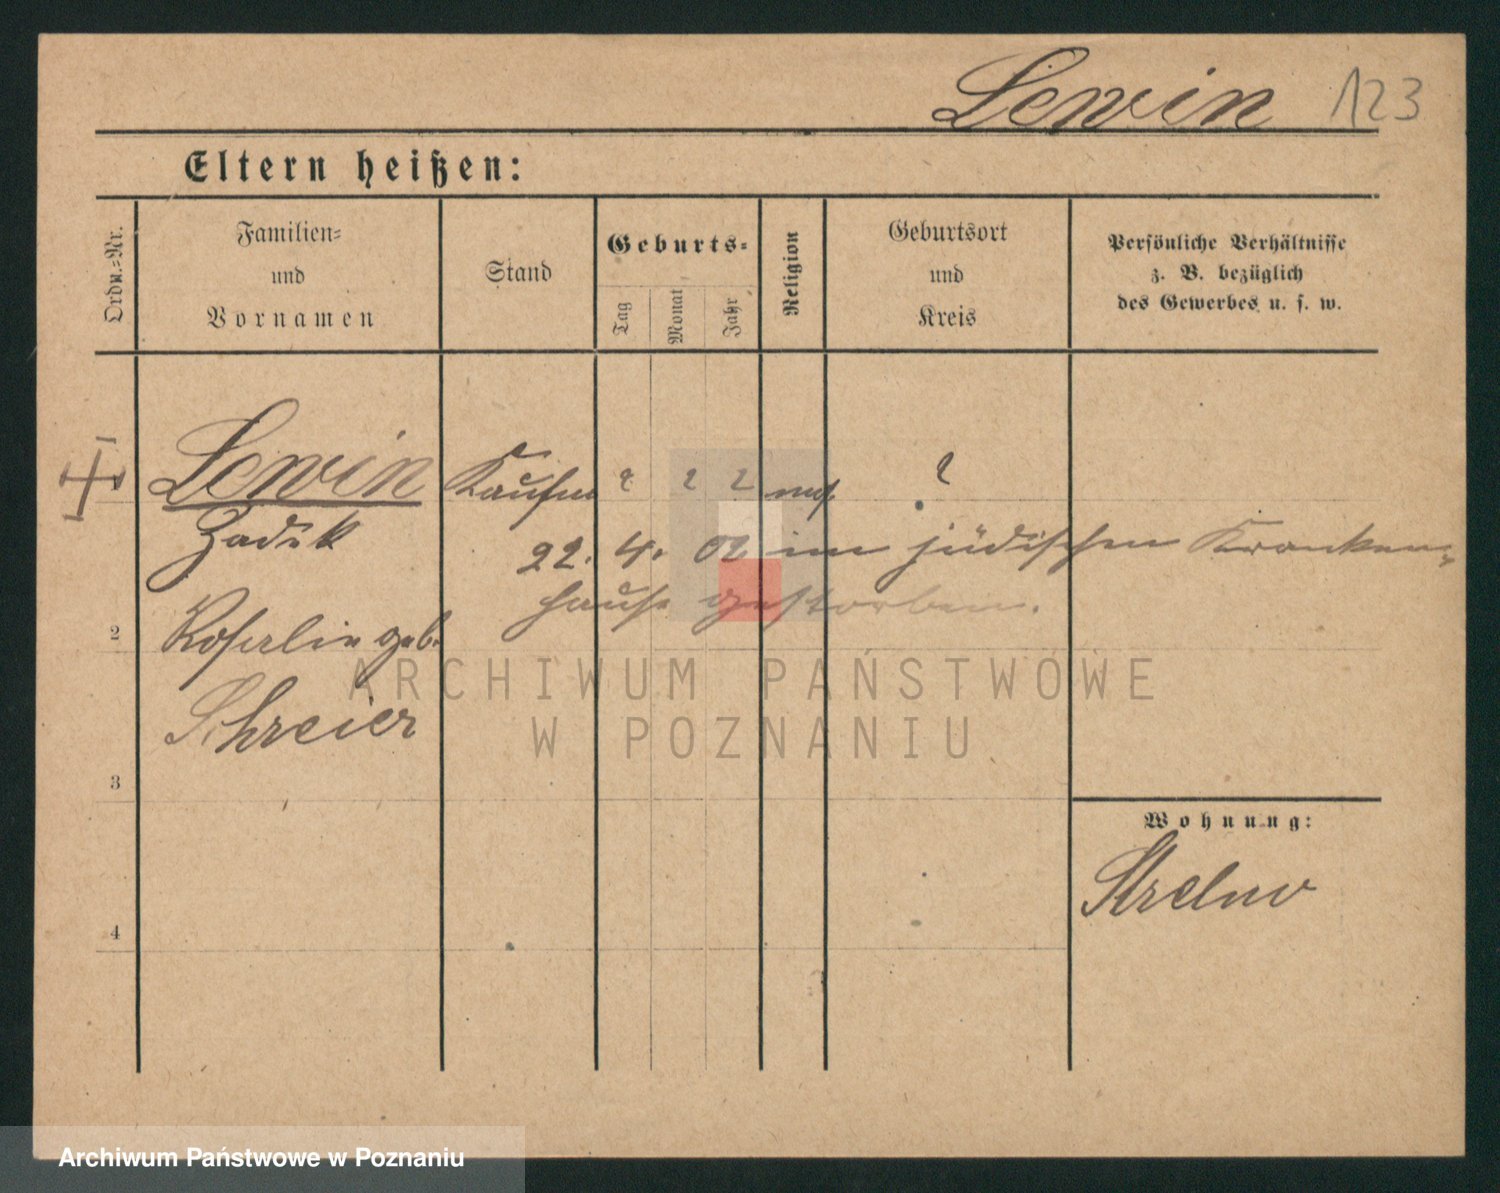 Lewin 123
Eltern heißen:
Ordn.-Nr.
Familien-
und
Vornamen
Stand
Geburts-
Tag
Monat
Jahr
Religion
Geburtsort
und
Kreis
Persönliche Verhältnisse
z. B. bezüglich
des Gewerbes u. s. w.
Lewin Kaufm ? ? ? mos. ?
Zadek
22. 4. 02 im jüdischen Kranken-
hause gestorben.
2 Rosalie geb.
Schreier
3
4
Wohnung:
Strelno
ARCHIWUM PAŃSTWOWE
W POZNANIU
Archiwum Państwowe w Poznaniu